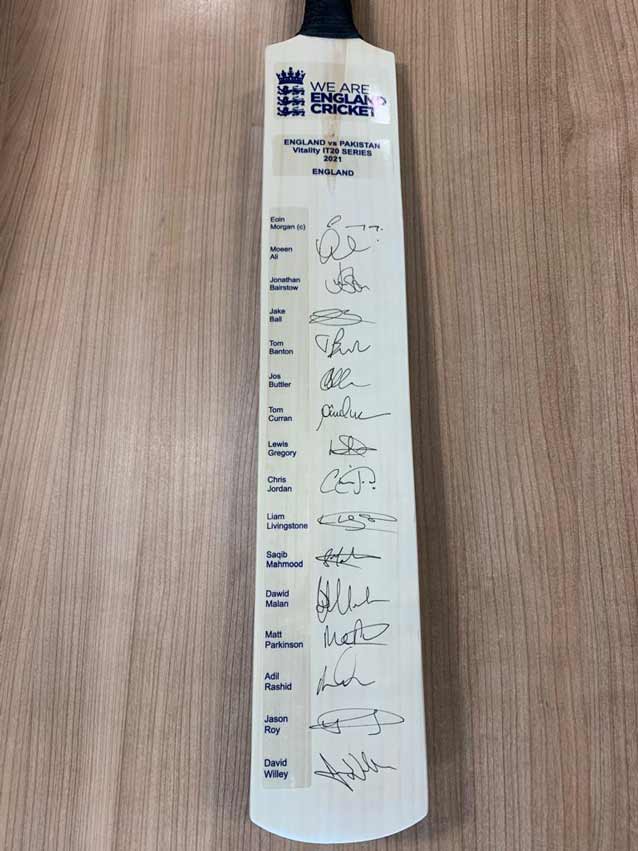 WE ARE
ENGLAND
CRICKET
ENGLAND vs PAKISTAN
Vitality IT20 SERIES
2021
ENGLAND
Eoin
Morgan (c)
Moeen
Ali
Jonathan
Bairstow
Jake
Ball
Tom
Banton
Jos
Buttler
Tom
Curran
Lewis
Gregory
Chris
Jordan
Liam
Livingstone
Saqib
Mahmood
Dawid
Malan
Matt
Parkinson
Adil
Rashid
Jason
Roy
David
Willey